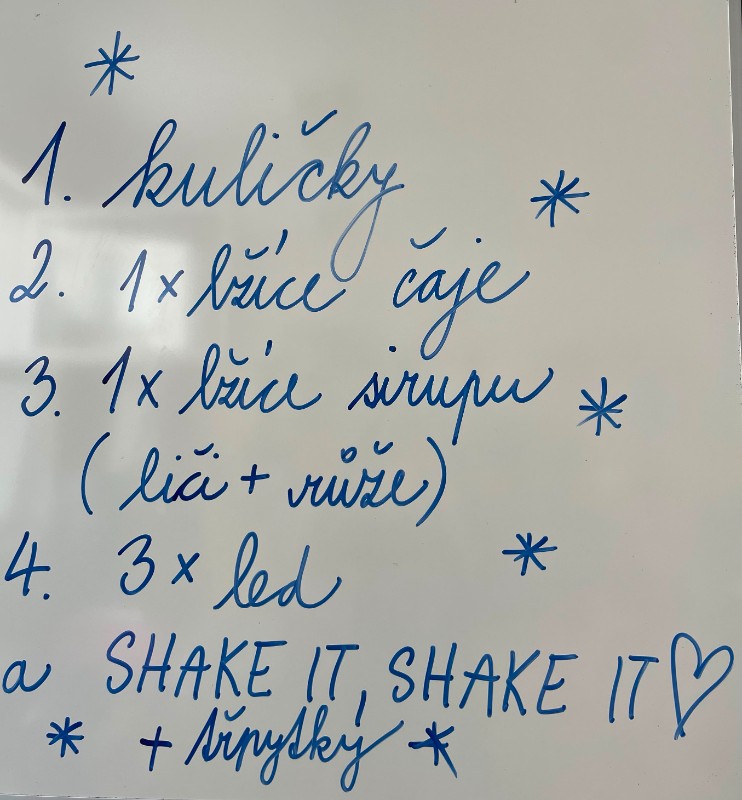 1. kuličky
2. 1x lžíce čaje
3. 1x lžíce sirupu
(liči + růže)
4. 3x led
a SHAKE IT, SHAKE IT♡
+ třpytky